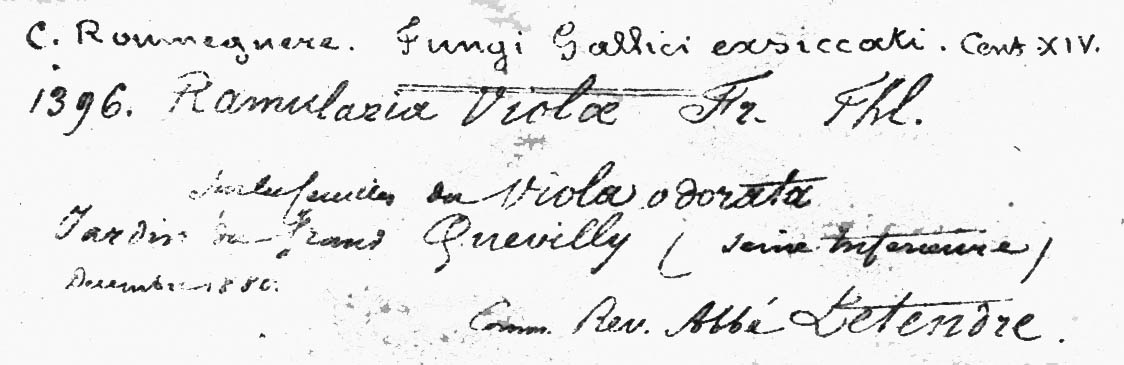 C. Roumeguere. Fungi Gallici exsiccati. Cent. XIV.
1396. Ramularia Violæ Fr. Thl.
Sur les feuilles du Viola odorata
Jardin du Grand Quevilly (Seine Inferieure)
Decembre 1880.
Comm. Rev. Abbé Letendre.